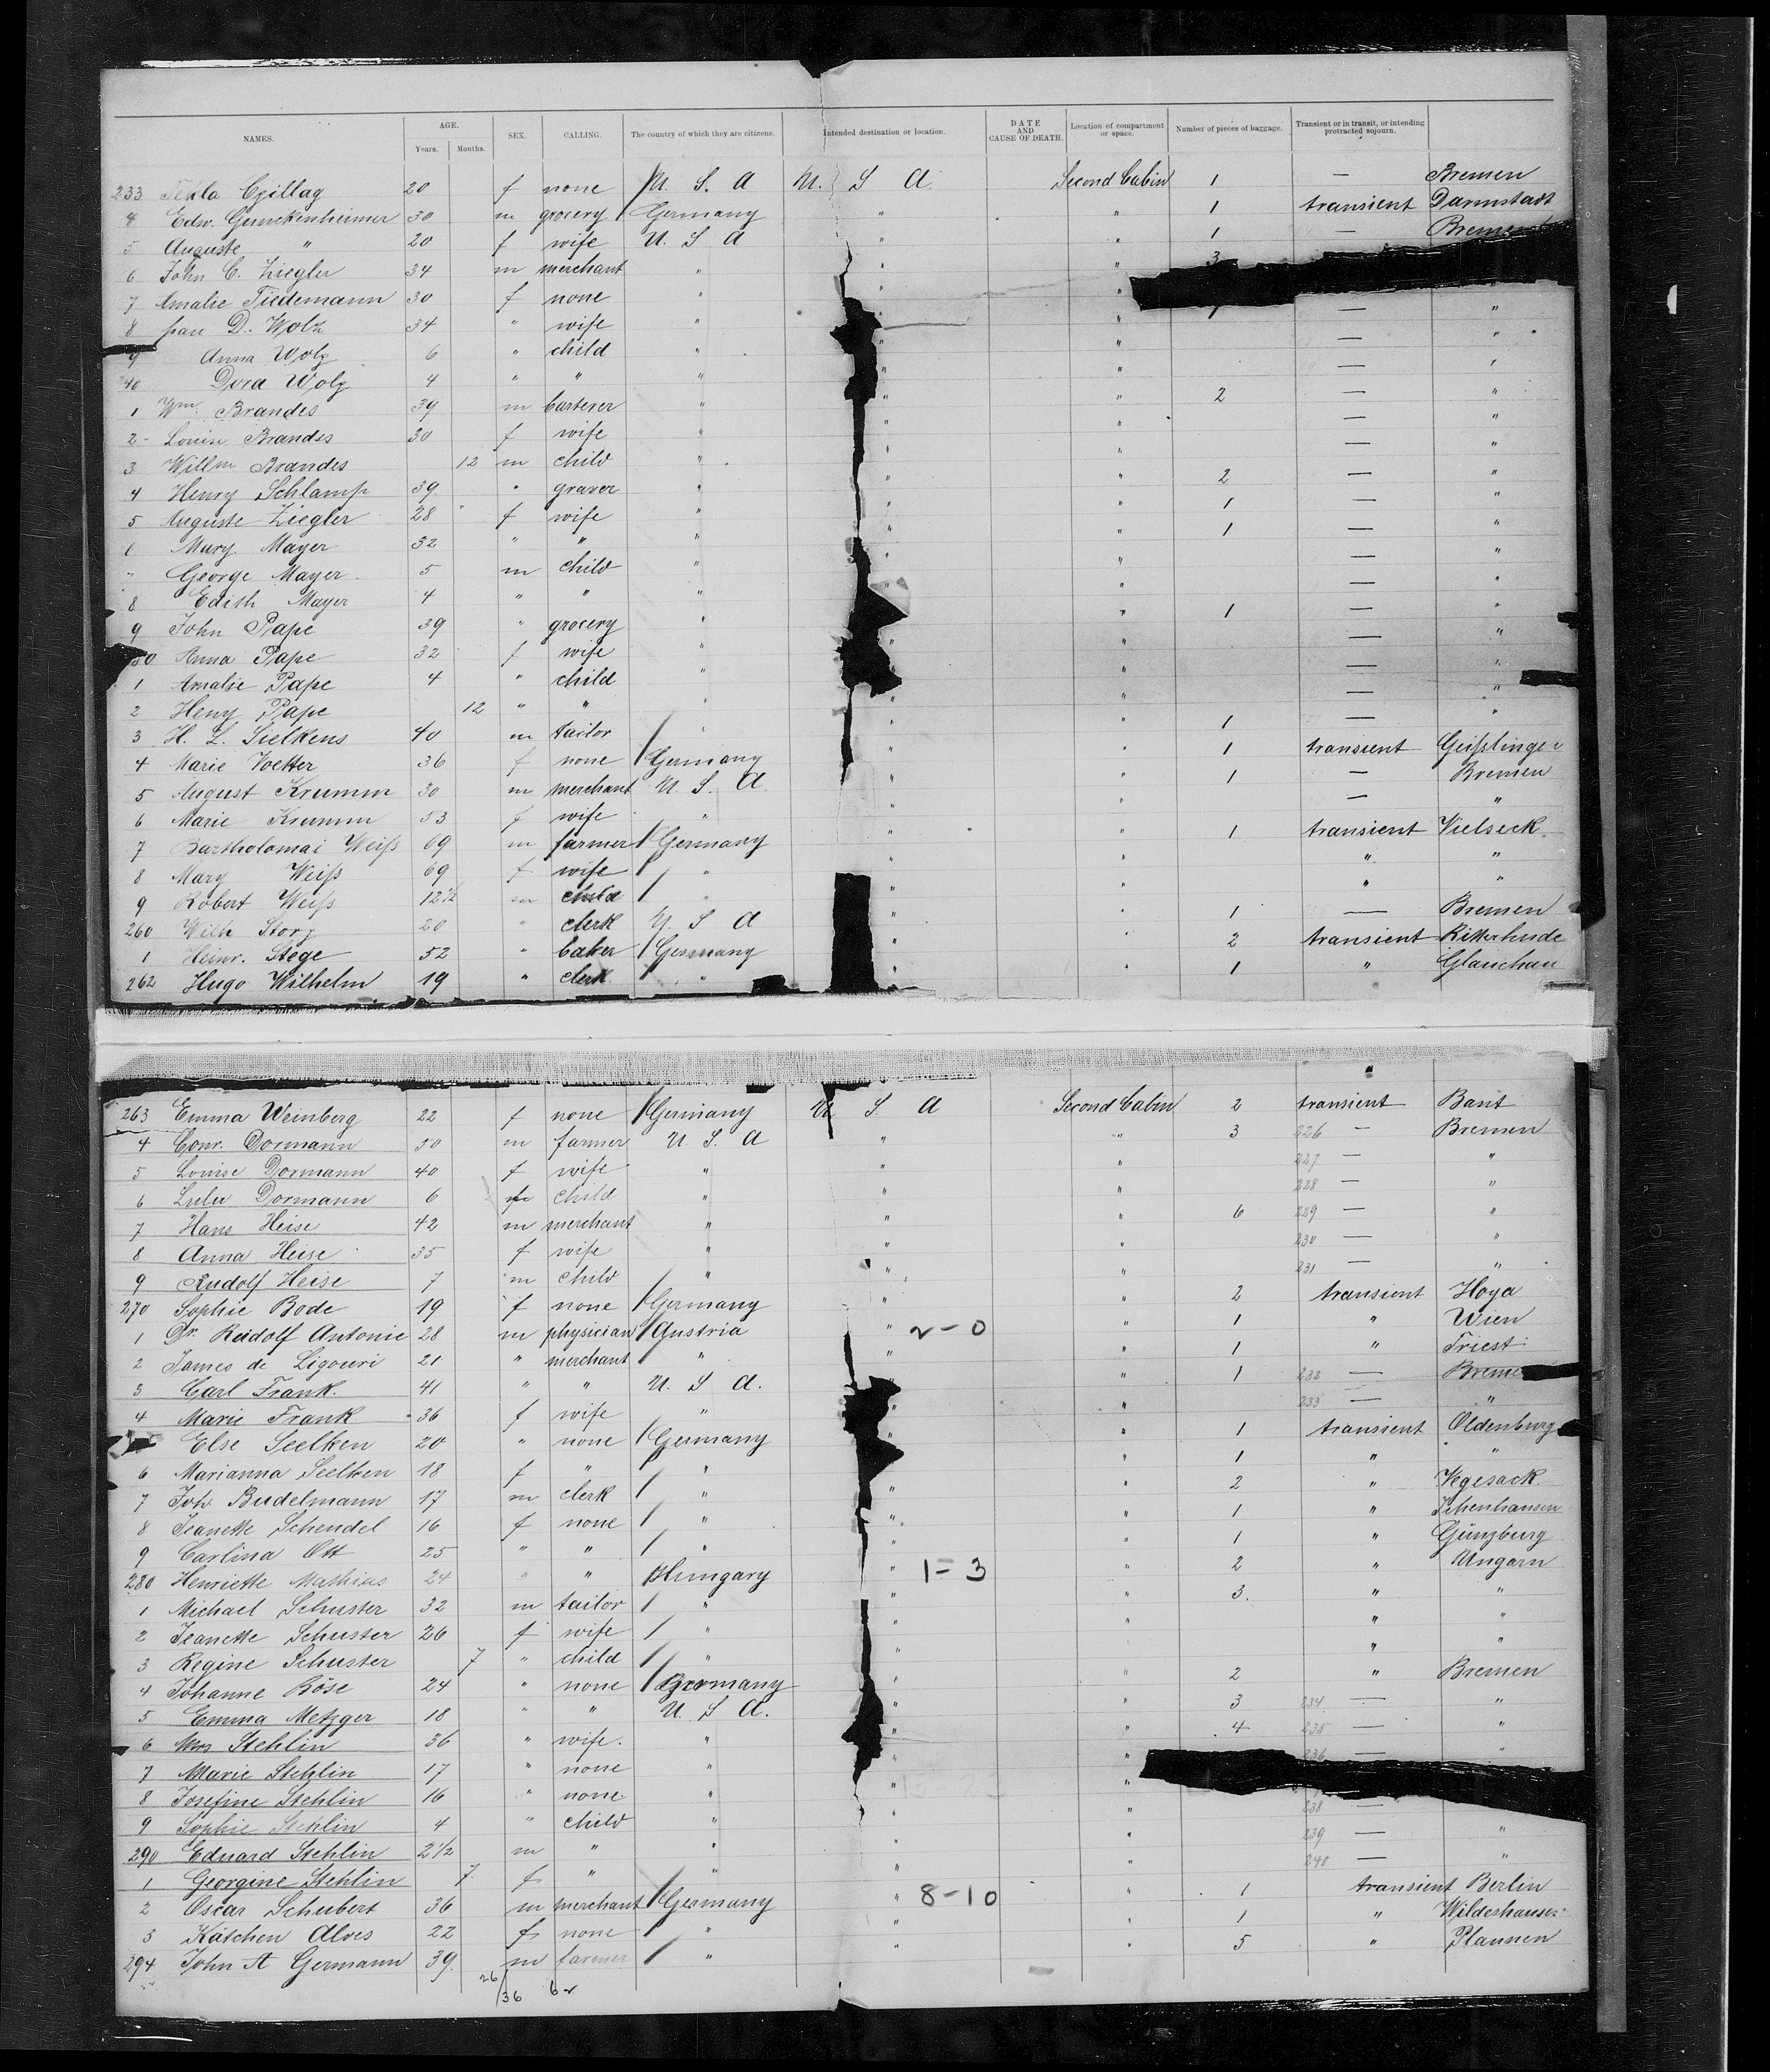 NAMES. AGE. Years. Months. SEX. CALLING. The country of which they are citizens. Intended destination or location. DATE AND CAUSE OF DEATH. Location of compartment or space. Number of pieces of baggage. Transient or in transit, or intending protracted sojourn.
233 Tekla Czillag 20 f none U. S. A U. S. A. Second Cabin 1 — Bremen
4 Edw. Gunckenheimer 30 m grocery Germany " " 1 transient Darmstadt
5 Auguste " 20 f wife U. S. A " " 1 — Bremen
6 John C. Ziegler 34 m merchant " " " 3
7 Amalie Tiedemann 30 f none " " "
8 D. Wolz 34 " wife " " " 1 — "
9 Anna Wolz 6 " child " " " — "
40 Dora Wolz 4 " " " " " — "
1 Wm. Brandes 39 m " " " 2 — "
2 Louise Brandes 30 f wife " " — "
3 Willm Brandes 12 m child " " — "
4 Henry Schlamp 39 " graver " " 2 — "
5 Auguste Ziegler 28 f wife " " " 1 — "
6 Mary Mayer 32 " " " " " 1 — "
" George Mayer 5 m child " " — "
8 Edith Mayer 4 " " " " " — "
9 John Pape 39 " grocery " " 1 — "
50 Anna Pape 32 f wife " " " — "
1 Amalie Pape 4 " child " " — "
2 Heny Pape 12 " " " " " — "
3 H. L. Sielkens 40 m tailor " " " 1 — "
4 Marie Voetter 36 f none Germany " " 1 transient
5 August Krumm 30 m merchant U. S. A. " " 1 — Bremen
6 Marie Krumm 53 f wife " " " — "
7 Bartholomai Weiß 69 m farmer Germany " " 1 transient Vielseck
8 Mary Weiß 69 f wife " " " " "
9 Robert Weiß 12½ m child " " " " "
260 Wilh Storz 20 " clerk U. S A " " 1 — Bremen
1 Heinr. Stege 52 " baker Germany " " 2 transient Ritterhude
262 Hugo Wilhelm 19 " clerk " " 1 " Glauchau
263 Emma Weinberg 22 f none Germany U S. A Second Cabin 2 transient Bant
4 Conr. Dormann 50 m farmer U. S. A " " 3 226 — Bremen
5 Louise Dormann 40 f wife " " " 227 — "
6 Lulu Dormann 6 child " " " 228 — "
7 Hans Heise 42 m merchant " " " 6 229 — "
8 Anna Heise 35 f wife " " " 230 — "
9 Rudolf Heise 7 m child " " " 231 — "
270 Sophie Bode 19 f none Germany " " 2 transient Hoya
1 Dr. Rudolf Antonie 28 m physician Austria " 2-0 " 1 " Wien
2 James de Ligouri 21 " merchant " " " 1 " Triest
3 Carl Frank. 41 " " U. S A. " " 1 232 — Breme
4 Marie Frank 36 f wife " " " 233 — "
Else Seelken 20 " none Germany " " 1 transient Oldenburg
6 Marianna Seelken 18 f " " " " 1 " "
7 Joh Budelmann 17 m clerk " " " 2 " Vegesack.
8 Jeanette Schendel 16 f none " " " 1 " Ichenhausen
9 Carlina Ott 25 " " " " " 1 " Günzburg
280 Henriette Mathias 24 " " Hungary " 1-3 " 2 " Ungarn
1 Michael Schuster 32 m tailor " " " 3. " "
2 Jeanette Schuster 26 f wife " " " " "
3 Regine Schuster 7 " child " " " "
4 Johanne Röse 24 " none Germany " " 2 " Bremen
5 Emma Metzger 18 " " U. S A. " " 3 234 — "
6 Mrs Stehlin 36 " wife. " " " 4 235 — "
7 Marie Stehlin 17 " none " " " 236 — "
8 Josefine Stehlin 16 " none " " "
9 Sophie Stehlin 4 " child " " " 238 —
290 Eduard Stehlin 2½ m " " " " 239 — "
1 Georgine Stehlin 7 f " " " " 240 — "
2 Oscar Schubert 36 m merchant Germany " 8-10 " 1 transient Berlin
3 Kätchen Alves 22 f none " " " 1 " Wildeshausen
294 John A Germann 39. m farmer " " " 5 " Plaunen
26/36